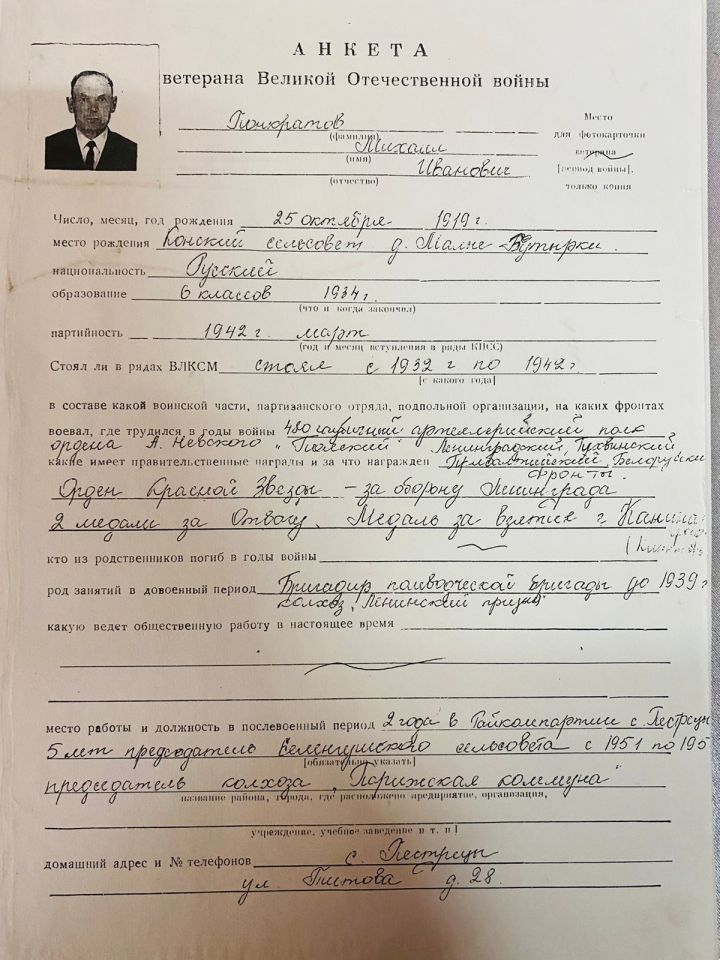 АНКЕТА
ветерана Великой Отечественной войны
Панкратов
(фамилия)
Михаил
(имя)
Иванович
(отчество)
Место
для фотокарточки
ветерана
[период войны],
только копия
Число, месяц, год рождения 25 октября 1919 г.
место рождения Конский сельсовет д. Малые Бутырки.
национальность Русский
образование 6 классов 1934 г.
(что и когда закончил)
партийность 1942 г. март
(год и месяц вступления в ряды КПСС)
Стоял ли в рядах ВЛКСМ стоял с 1932 г по 1942 г
[с какого года]
в составе какой воинской части, партизанского отряда, подпольной организации, на каких фронтах
воевал, где трудился в годы войны 480 артеллерийский полк
ордена А. Невского Ленинградский,
какие имеет правительственные награды и за что награжден Прибалтийский, Белорусский
фронты.
Орден Красной Звезды – за оборону Ленинграда
2 медали за Отвагу. Медаль за взятие г.
кто из родственников погиб в годы войны
род занятий в довоенный период Бригадир бригады до 1939 г
колхоз „Ленинский призыв"
какую ведет общественную работу в настоящее время
место работы и должность в послевоенный период 2 года в Райкомпартии с. Пестрецы
5 лет председатель сельсовета с 1951 по 195
[обязательно указать]
председатель колхоза „Парижская коммуна"
название района, города, где расположено предприятие, организация,
учреждение, учебное заведение и т. п]
домашний адрес и № телефонов с. Пестрецы
ул. Титова д. 28.